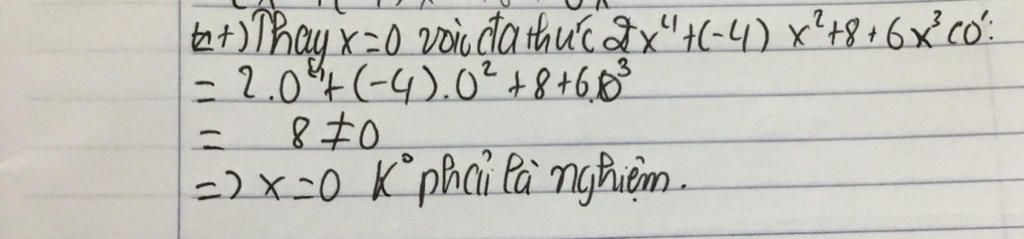 +) Thay x=0 vào đa thức 2x⁴+(-4) x²+8+6x³ có:
= 2.0⁴+(-4).0²+8+6.0³
= 8≠0
=> x=0 K° phải là nghiệm.